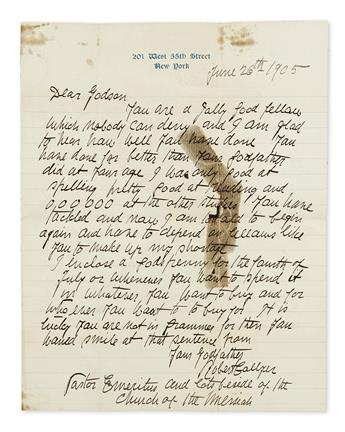 201 West 55th Street
New York
June 26th 1905
Dear Godson
You are a Jolly good fellow
which nobody can deny and I am glad
to hear how well you have done You
have done far better than your godfather
did at your age I was only good at
spelling pretty good at reading and
0,00,000 at the other studies You have
tackled and now I am too old to begin
again and have to depend on fellows like
you to make up my shortage
I inclose a for the fourth of
July or whenever you want to spend it
in whatever you want to buy and for
whoever you want to buy for It is
lucky you are not in grammer for then you
would smile at that sentence from
Your Godfather
Robert Collyer
Pastor Emeritus and of the
Church of the Messiah